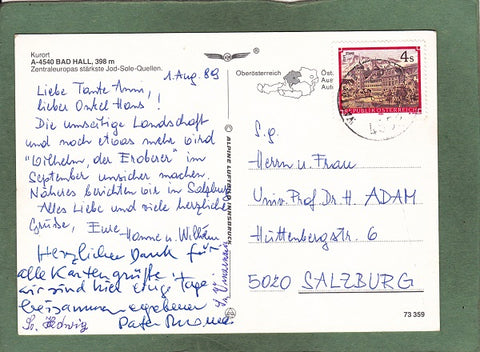 Kurort
A-4540 BAD HALL, 398 m
Zentraleuropas stärkste Jod-Sole-Quellen.
1. Aug. 89
Liebe Tante Anni,
lieber Onkel Hans!
Die umseitige Landschaft
und noch etwas mehr, wird
"Wilhelm, der Eroberer" im
September unsicher machen.
Näheres berichten wir in Salzburg
Alles Liebe und viele herzliche
Grüße, Eure
Hanne u. Wilhelm
Herzlichen Dank für
alle Kartengrüße
wir sind hier einige Tage
beisammen ergebener
Sr. Hedwig Pater
© ALPINE LUFTBILD INNSBRUCK
Oberösterreich
Öst.
4 S
REPUBLIK ÖSTERREICH
S.g.
Herrn u. Frau
Univ. Prof. Dr. H. ADAM
Hüttenbergstr. 6
5020 SALZBURG
73 359